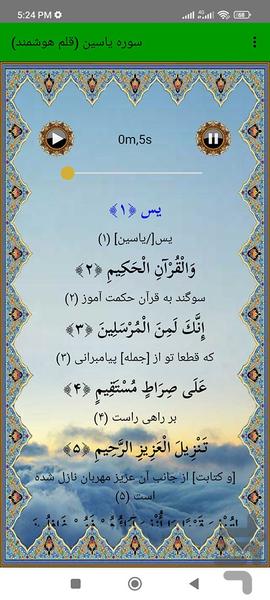 5:24 PM
سوره یاسین (قلم هوشمند)
0m,5s
یس ﴿۱﴾
یس[/یاسین] (۱)
وَالْقُرْآنِ الْحَكِيمِ ﴿۲﴾
سوگند به قرآن حکمت آموز (۲)
إِنَّكَ لَمِنَ الْمُرْسَلِينَ ﴿۳﴾
که قطعا تو از [جمله] پیامبرانی (۳)
عَلَى صِرَاطٍ مُسْتَقِيمٍ ﴿۴﴾
بر راهی راست (۴)
تَنْزِيلَ الْعَزِيزِ الرَّحِيمِ ﴿۵﴾
[و کتابت] از جانب آن عزیز مهربان نازل شده
است (۵)